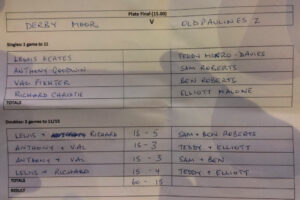 Plate Final (15.00)
DERBY MOOR V OLD PAULINES 2
Singles: 1 game to 11
LEWIS KEATES TEDDY MUNRO-DAVIES
ANTHONY GOODWIN SAM ROBERTS
VAL FISHTER BEN ROBERTS
RICHARD CHRISTIE ELLIOTT MALONE
TOTALS
Doubles: 2 games to 11/15
LEWIS + RICHARD 15 - 5 SAM + BEN ROBERTS
ANTHONY + VAL 15 - 3 TEDDY + ELLIOTT
ANTHONY + VAL 15 - 3 SAM + BEN
LEWIS + RICHARD 15 - 4 TEDDY + ELLIOTT
TOTALS 60 - 15
RESULT